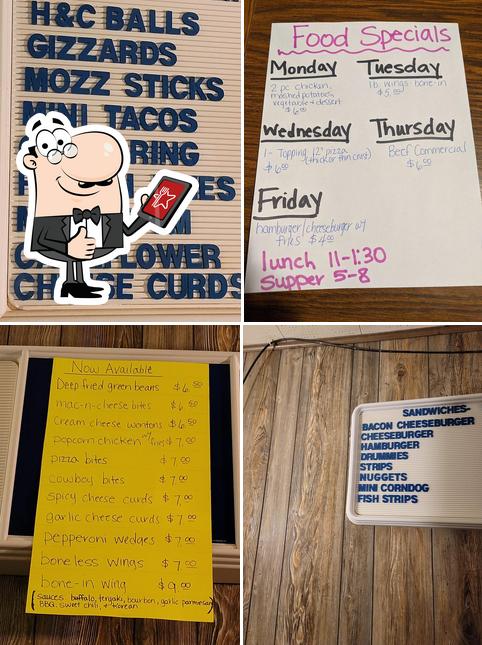 H&C BALLS
GIZZARDS
MOZZ STICKS
MINI TACOS
RING
ES
M
LOWER
CHEESE CURDS
Food Specials
Monday
2 pc chicken,
mashed potatoes,
vegetable + dessert
$6.00
Tuesday
1 lb. wings bone-in
$5.00
Wednesday
1- Topping 12" pizza
(thick or thin crust)
$6.00
Thursday
Beef Commercial
$6.00
Friday
hamburger/cheeseburger w/
fries $4.00
lunch 11-1:30
Supper 5-8
Now Available
Deep fried green beans $6.50
mac-n-cheese bites $6.50
Cream cheese wontons $6.50
popcorn chicken w/ fries $7.00
pizza bites $7.00
cowboy bites $7.00
spicy cheese curds $7.00
garlic cheese curds $7.00
pepperoni wedges $7.00
boneless wings $7.00
bone-in wing $9.00
(Sauces: buffalo, teriyaki, bourbon, garlic parmesan
BBQ, sweet chili, + Korean)
SANDWICHES-
BACON CHEESEBURGER
CHEESEBURGER
HAMBURGER
DRUMMIES
STRIPS
NUGGETS
MINI CORNDOG
FISH STRIPS